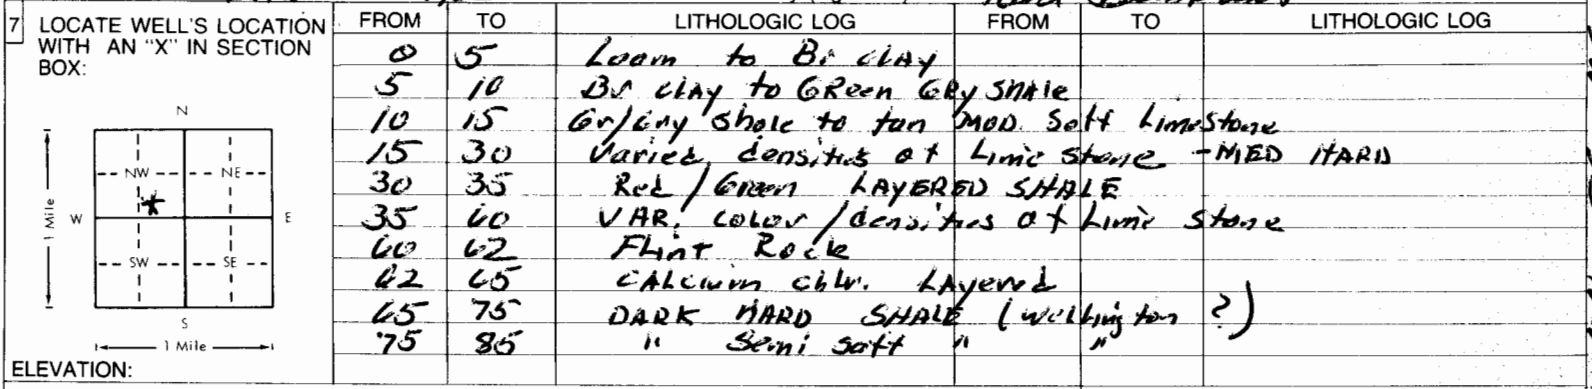 7 LOCATE WELL'S LOCATION WITH AN "X" IN SECTION BOX:
FROM TO LITHOLOGIC LOG FROM TO LITHOLOGIC LOG
0 5 Loam to Br clAy
5 10 Br clAy to GReen GRy SHAle
10 15 Gr/Gry Shale to tan MOD. Soft LimeStone
15 30 Varied densities of Lime stone - MED HARD
30 35 Red / Green LAYERED SHALE
35 60 VAR. color / densities of Lime stone
60 62 FLint Rock
62 65 CALcium chlr. LAyered
65 75 DARK HARD SHALE (Wellington ?)
75 85 " Semi soft " "
N
NW NE
W X E
1 Mile
SW SE
S
1 Mile
ELEVATION: